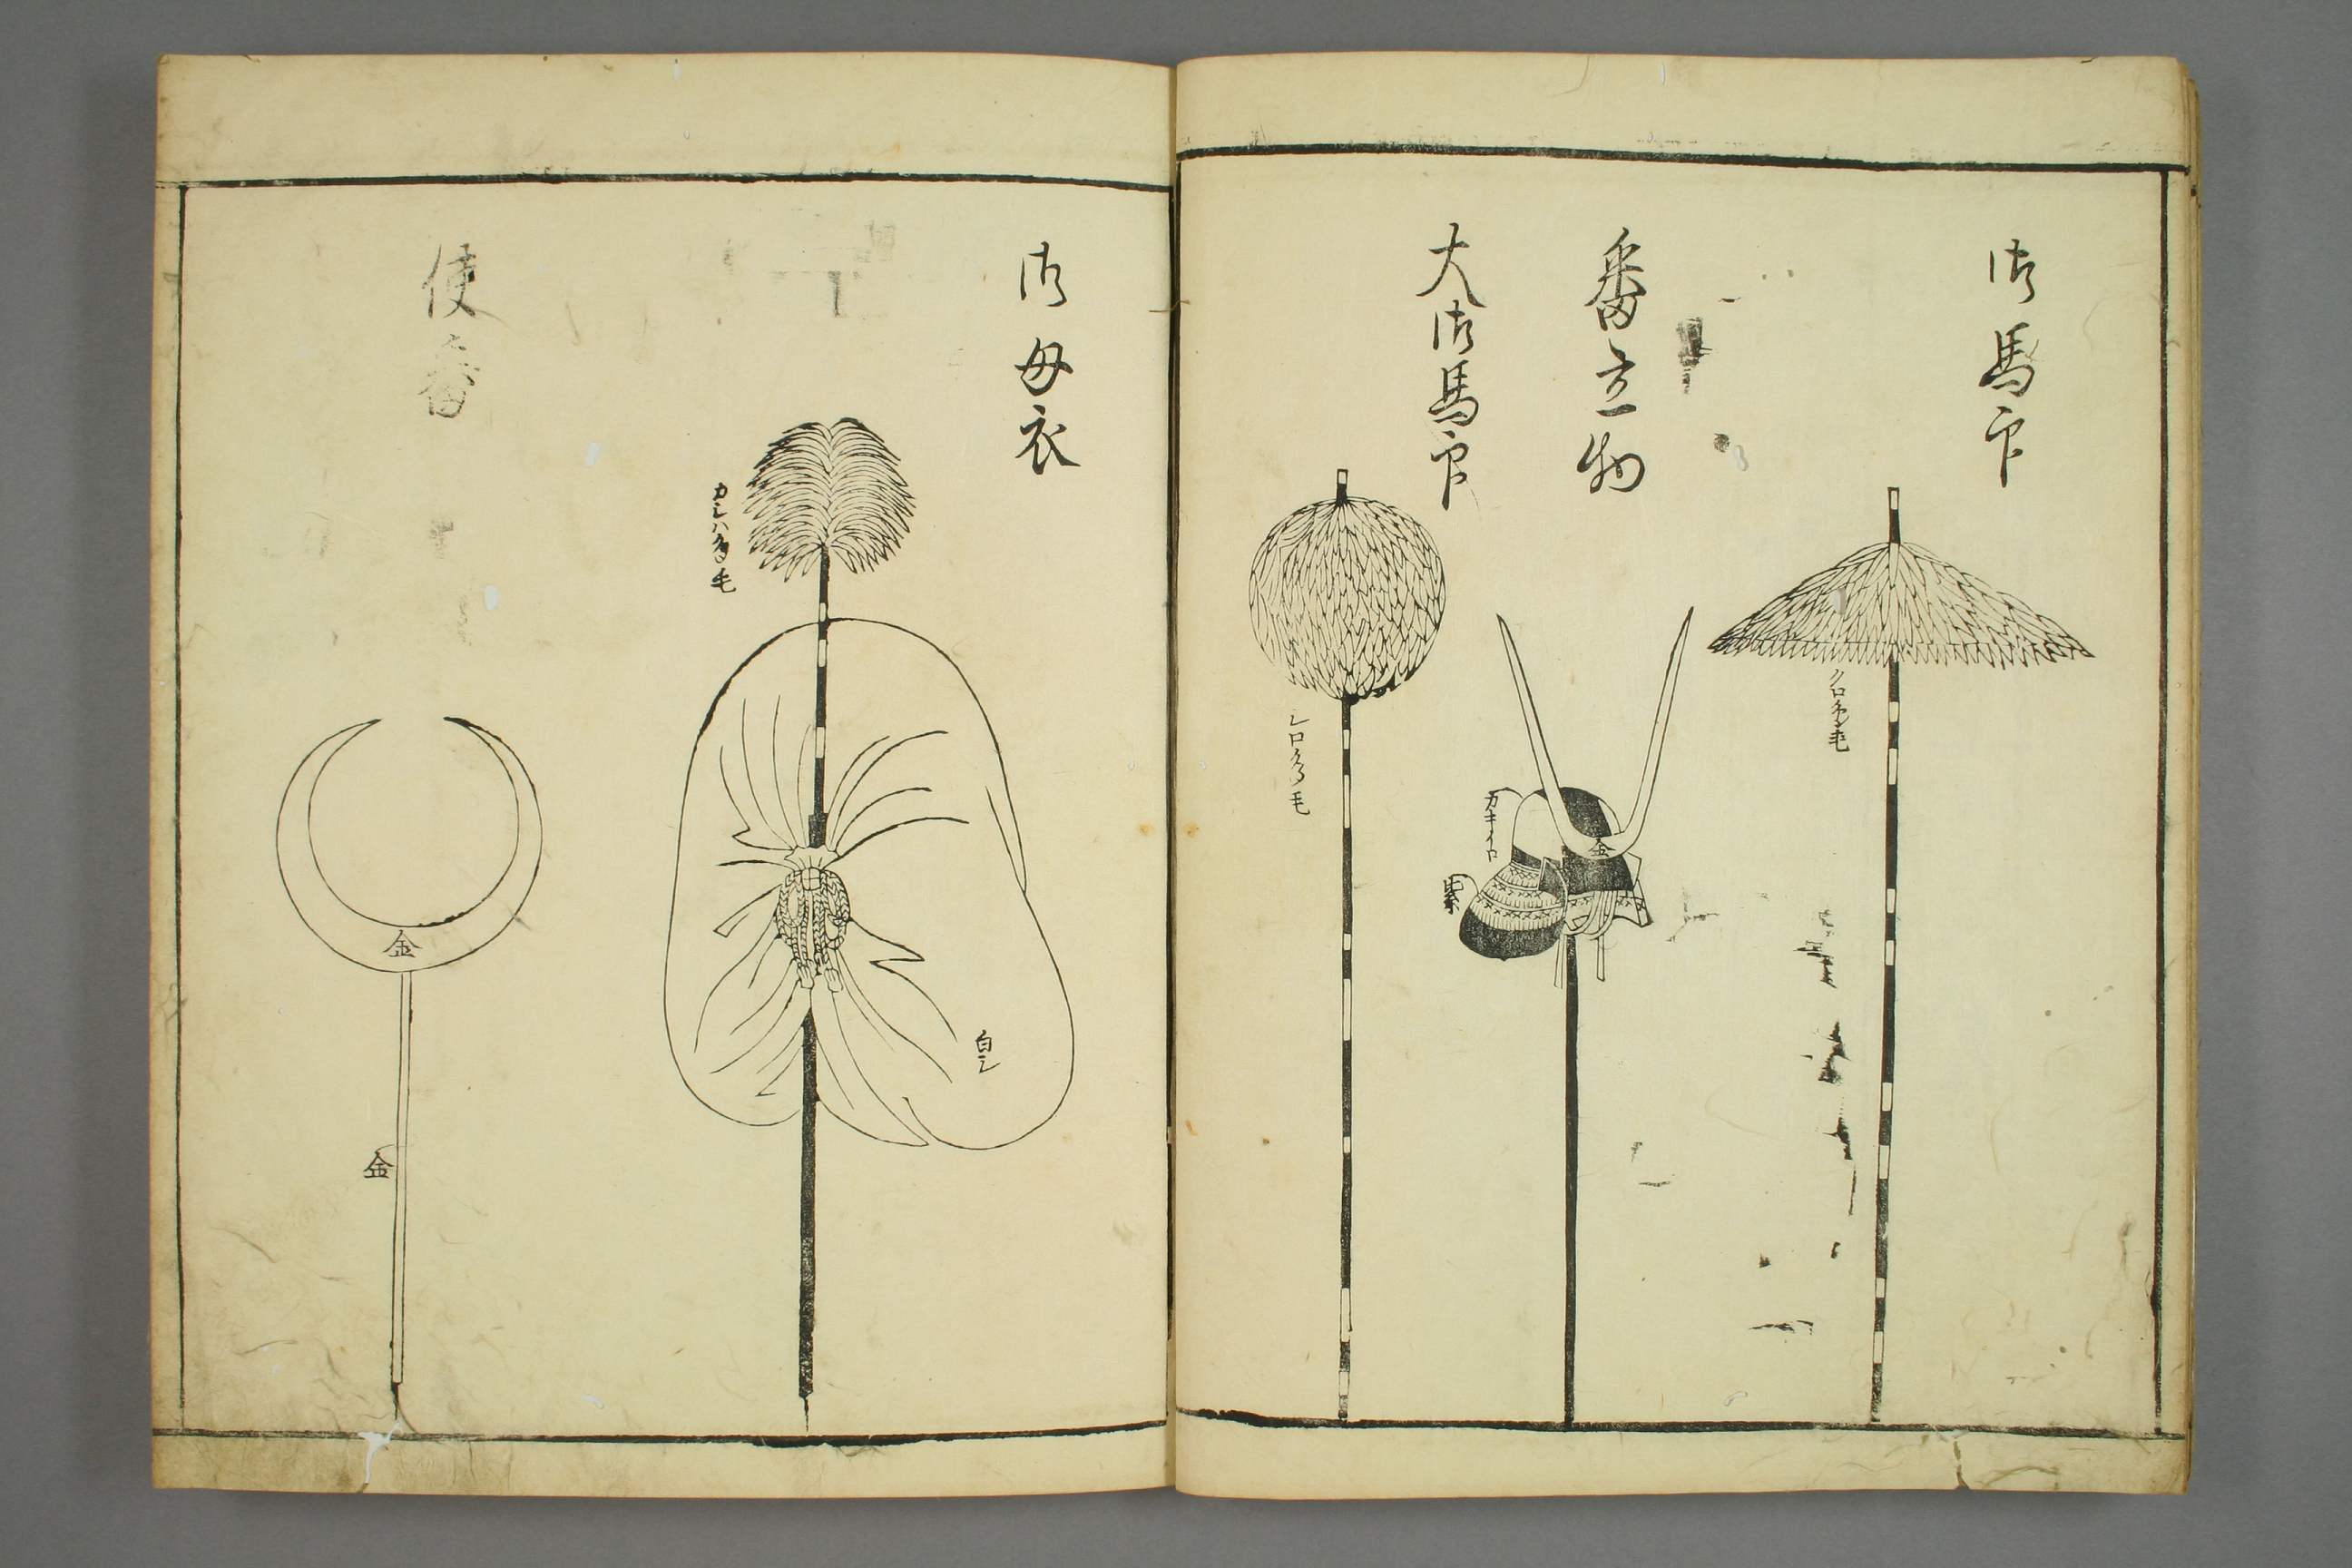 御馬印
クロ鳥毛
番立物
金
カキイロ
紫
大御馬印
シロ鳥毛
御母衣
カシハ鳥毛
白シ
使番
金
金